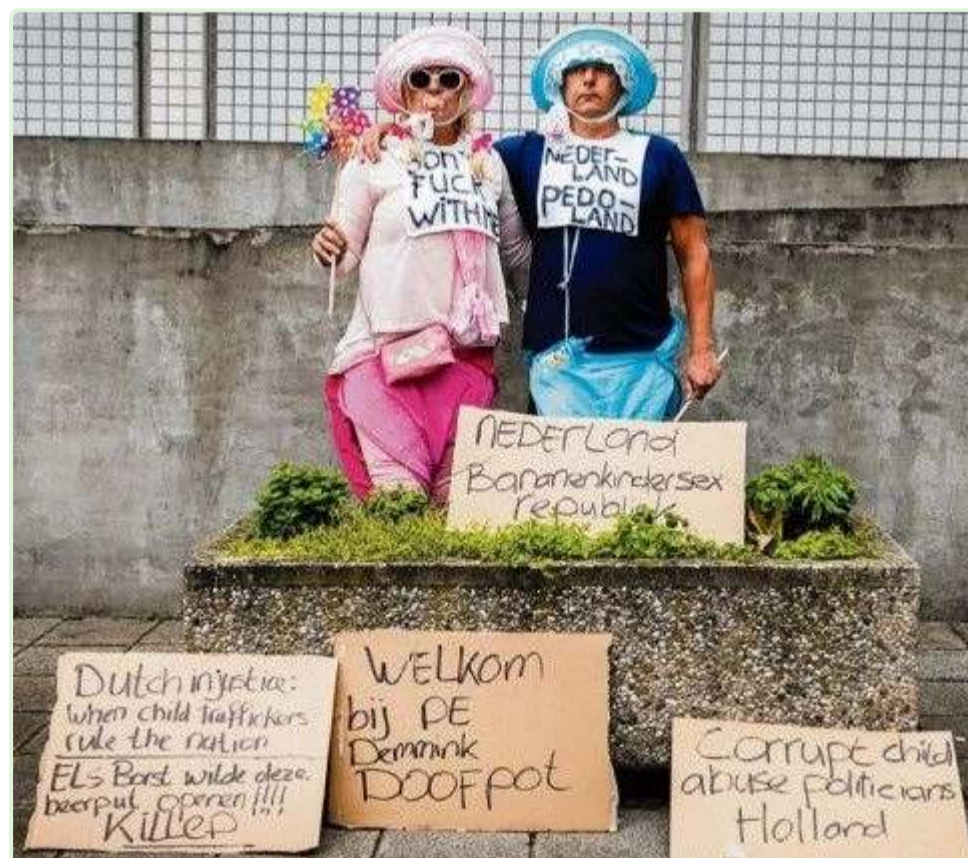 DON'T
FUCK
WITH ME
NEDER-
LAND
PEDO-
LAND
NEDERLand
Bananenkindersex
republiek
Dutch injustice:
when child traffickers
rule the nation
ELs Borst wilde deze
beerput openen!!!!
KiLLED
WELKOM
bij DE
Demmink
DOOFpot
Corrupt child
abuse politicians
Holland